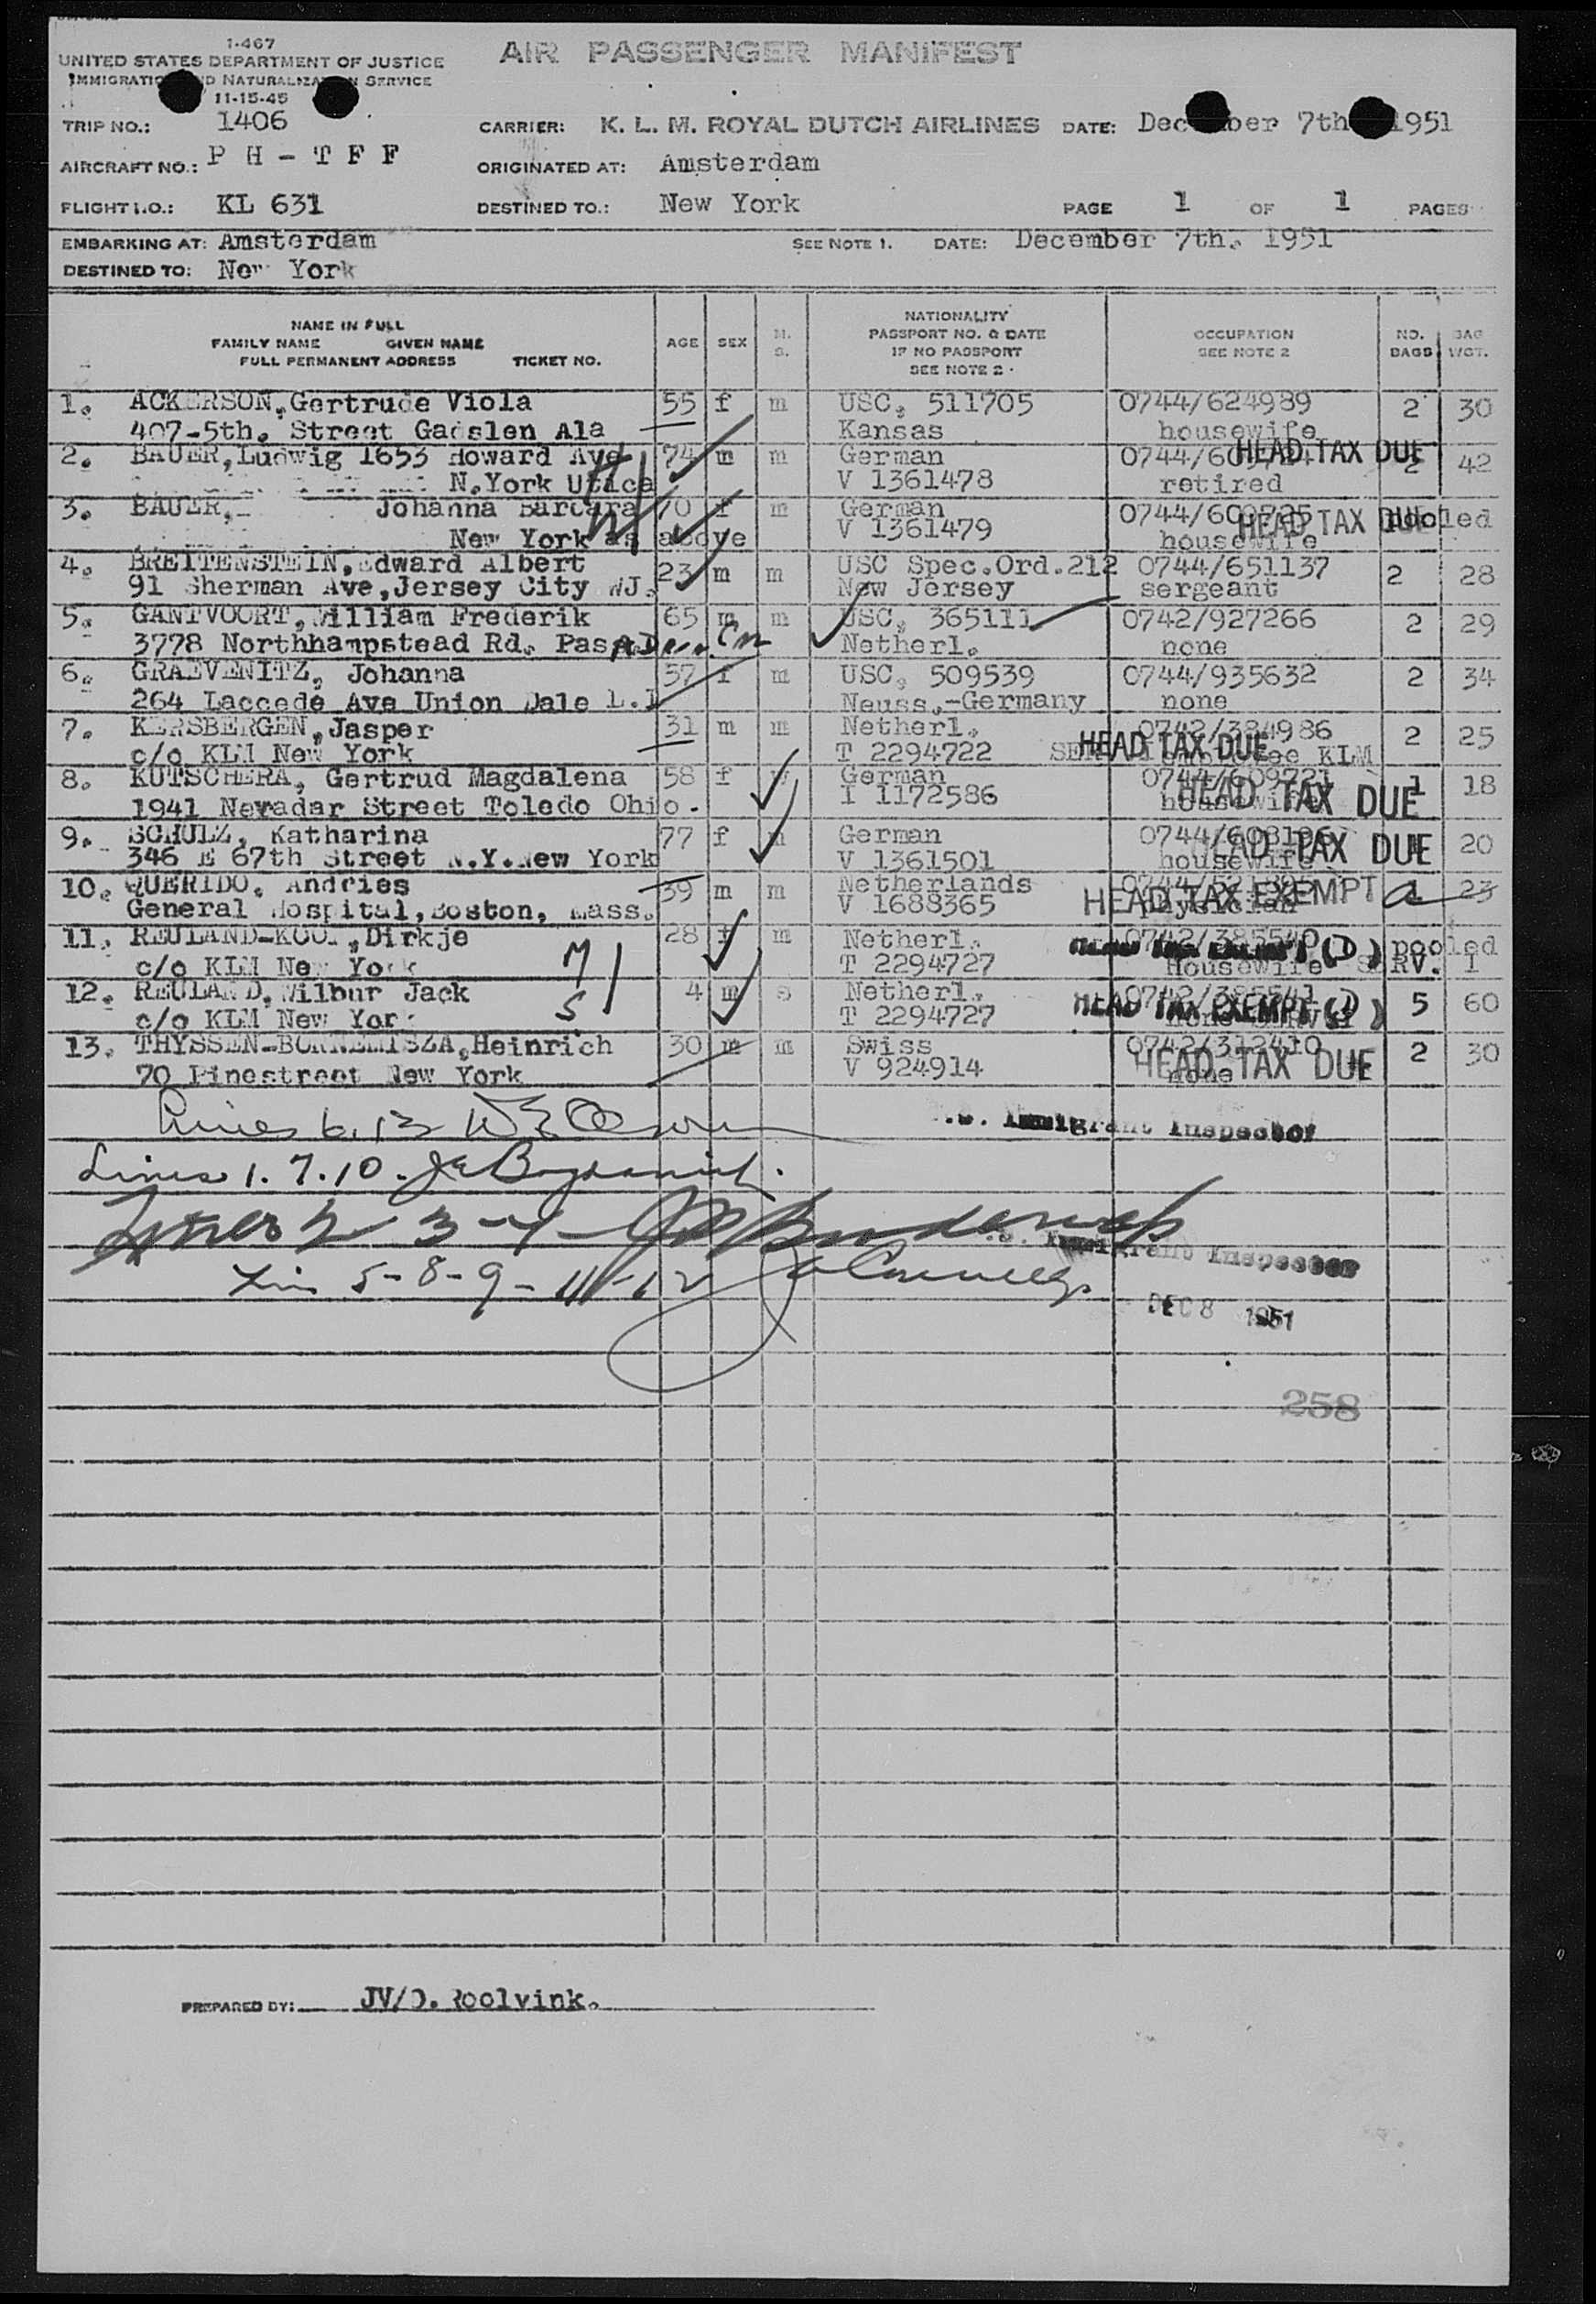 1-467
UNITED STATES DEPARTMENT OF JUSTICE
IMMIGRATION AND NATURALIZATION SERVICE
11-15-45
AIR PASSENGER MANIFEST
TRIP NO.: 1406 CARRIER: K. L. M. ROYAL DUTCH AIRLINES DATE: December 7th 1951
AIRCRAFT NO.: P H - T F F ORIGINATED AT: Amsterdam
FLIGHT I.O.: KL 631 DESTINED TO.: New York PAGE 1 OF 1 PAGES
EMBARKING AT: Amsterdam SEE NOTE 1. DATE: December 7th. 1951
DESTINED TO: New York
NAME IN FULL
FAMILY NAME GIVEN NAME
FULL PERMANENT ADDRESS TICKET NO.
AGE SEX M. S.
NATIONALITY
PASSPORT NO. & DATE
IF NO PASSPORT
SEE NOTE 2.
OCCUPATION
SEE NOTE 2
NO. BAGS
BAG WGT.
1. ACKERSON, Gertrude Viola 55 f m USC, 511705 0744/624989 2 30
407-5th. Street Gadslen Ala Kansas housewife
2. BAUER, Ludwig 1653 Howard Ave 74 m m German HEAD TAX DUE 2 42
N.York Utica V 1361478 retired
3. BAUER, Johanna Barbara 70 f m German HEAD TAX DUE pooled
New York as above V 1361479 housewife
4. BREITENSTEIN, Edward Albert 23 m m USC Spec.Ord.212 0744/651137 2 28
91 Sherman Ave, Jersey City NJ. New Jersey sergeant
5. GANTVOORT, William Frederik 65 m m USC, 365111 0742/927266 2 29
3778 Northhampstead Rd. Pasadena Cal Netherl. none
6. GRAEVENITZ, Johanna 57 f m USC, 509539 0744/935632 2 34
264 Laccede Ave Union Dale L.I Neuss.-Germany none
7. KERSBERGEN, Jasper 31 m m Netherl. 0742/384986 2 25
c/o KLM New York T 2294722 HEAD TAX DUE employee KLM
8. KUTSCHERA, Gertrud Magdalena 58 f German 0744/609721 1 18
1941 Nevadar Street Toledo Ohio. I 1172586 housewife HEAD TAX DUE
9. SCHULZ, Katharina 77 f German HEAD TAX DUE 20
346 E 67th Street N.Y.New York V 1361501 housewife
10. QUERIDO, Andries 39 m m Netherlands HEAD TAX EXEMPT 23
General Hospital, Boston, Mass. V 1688365 physician
11. REULAND-KOOI, Dirkje 28 f m Netherl. 0742/385540 pooled
c/o KLM New York M T 2294727 Housewife SERV. I
12. REULAND, Wilbur Jack 4 m s Netherl. 0742/385541 5 60
c/o KLM New York S T 2294727 HEAD TAX EXEMPT none
13. THYSSEN-BORNEMISZA, Heinrich 30 m m Swiss 0742/312410 2 30
70 Pinestreet New York V 924914 HEAD TAX DUE none
Lines 6, 13 Immigrant Inspector
Lines 1. 7. 10.
Lines 2 3-4 Immigrant Inspector
Lin 5-8-9-11-12
DEC 8 1951
258
PREPARED BY: JV/D. Roolvink.